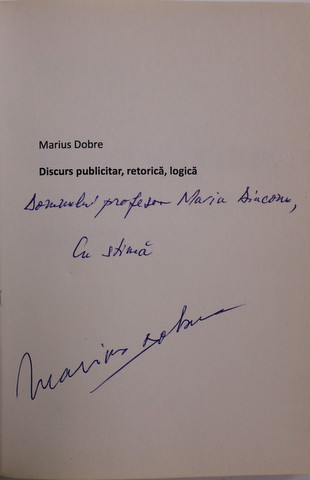 Marius Dobre
Discurs publicitar, retorică, logică
Domnului profesor Marin Diaconu,
Cu stimă
Marius Dobre